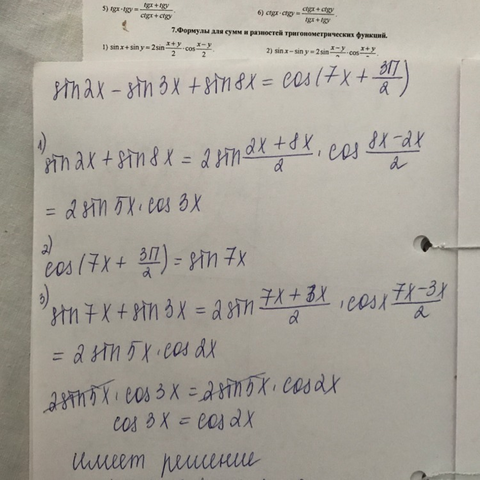 5) tgx · tgy = (tgx + tgy)/(ctgx + ctgy). 6) ctgx · ctgy = (ctgx + ctgy)/(tgx + tgy).
7.Формулы для сумм и разностей тригонометрических функций.
1) sin x + sin y = 2sin (x + y)/2 · cos (x − y)/2 2) sin x − sin y = 2sin (x − y)/2 · cos (x + y)/2
sin 2x − sin 3x + sin 8x = cos(7x + 3π/2)
1)
sin 2x + sin 8x = 2 sin (2x + 8x)/2 · cos (8x − 2x)/2
= 2 sin 5x · cos 3x
2)
cos(7x + 3π/2) = sin 7x
3)
sin 7x + sin 3x = 2 sin (7x + 3x)/2 · cos x (7x − 3x)/2
= 2 sin 5x · cos 2x
2 sin 5x · cos 3x = 2 sin 5x · cos 2x
cos 3x = cos 2x
Имеет решение